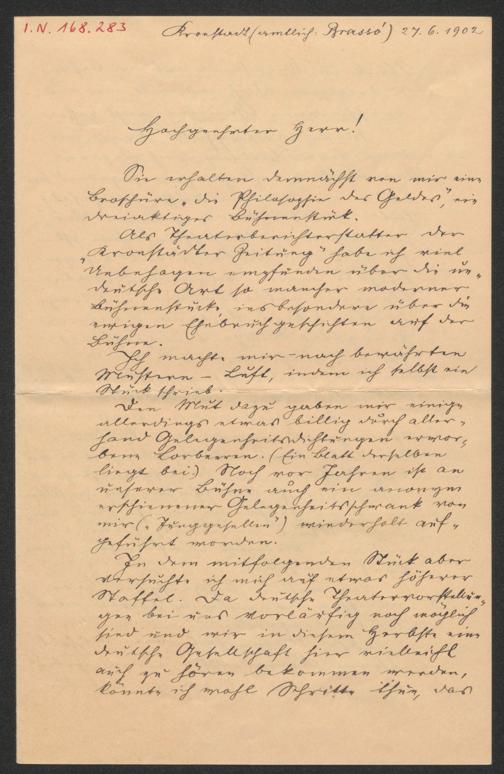 I.N. 168.283
Kronstadt (amtlich: Brassó) 27.6.1902
Hochgeehrter Herr!
Sie erhalten demnächst von mir eine
Broschüre „die Philosophie des Geldes", ein
dreiaktiges Bühnenstück.
Als Theaterberichterstatter der
„Kronstädter Zeitung" habe ich viel
Unbehagen empfunden über die un-
deutsche Art so mancher moderner
Bühnenstücke, insbesondere über die
ewigen Ehebruchgeschichten auf der
Bühne.
Ich machte mir – nach bewährten
Mustern – Luft, indem ich selbst ein
Stück schrieb.
Den Mut dazu gaben mir einige
allerdings etwas billig durch aller-
hand Gelegenheitsdichtungen erwor-
bene Lorbeeren. (Ein Blatt derselben
liegt bei.) Noch vor Jahren ist an
unserer Bühne auch ein anonym
erschienener Gelegenheitsschwank von
mir („Junggesellen") wiederholt auf-
geführt worden.
In dem mitfolgenden Stück aber
versuchte ich mich auf etwas höherer
Staffel. Da deutsche Theatervorstellun-
gen bei uns vorläufig noch möglich
sind und wir in diesem Herbste eine
deutsche Gesellschaft hier vielleicht
auch zu hören bekommen werden,
könnte ich wohl Schritte thun, das